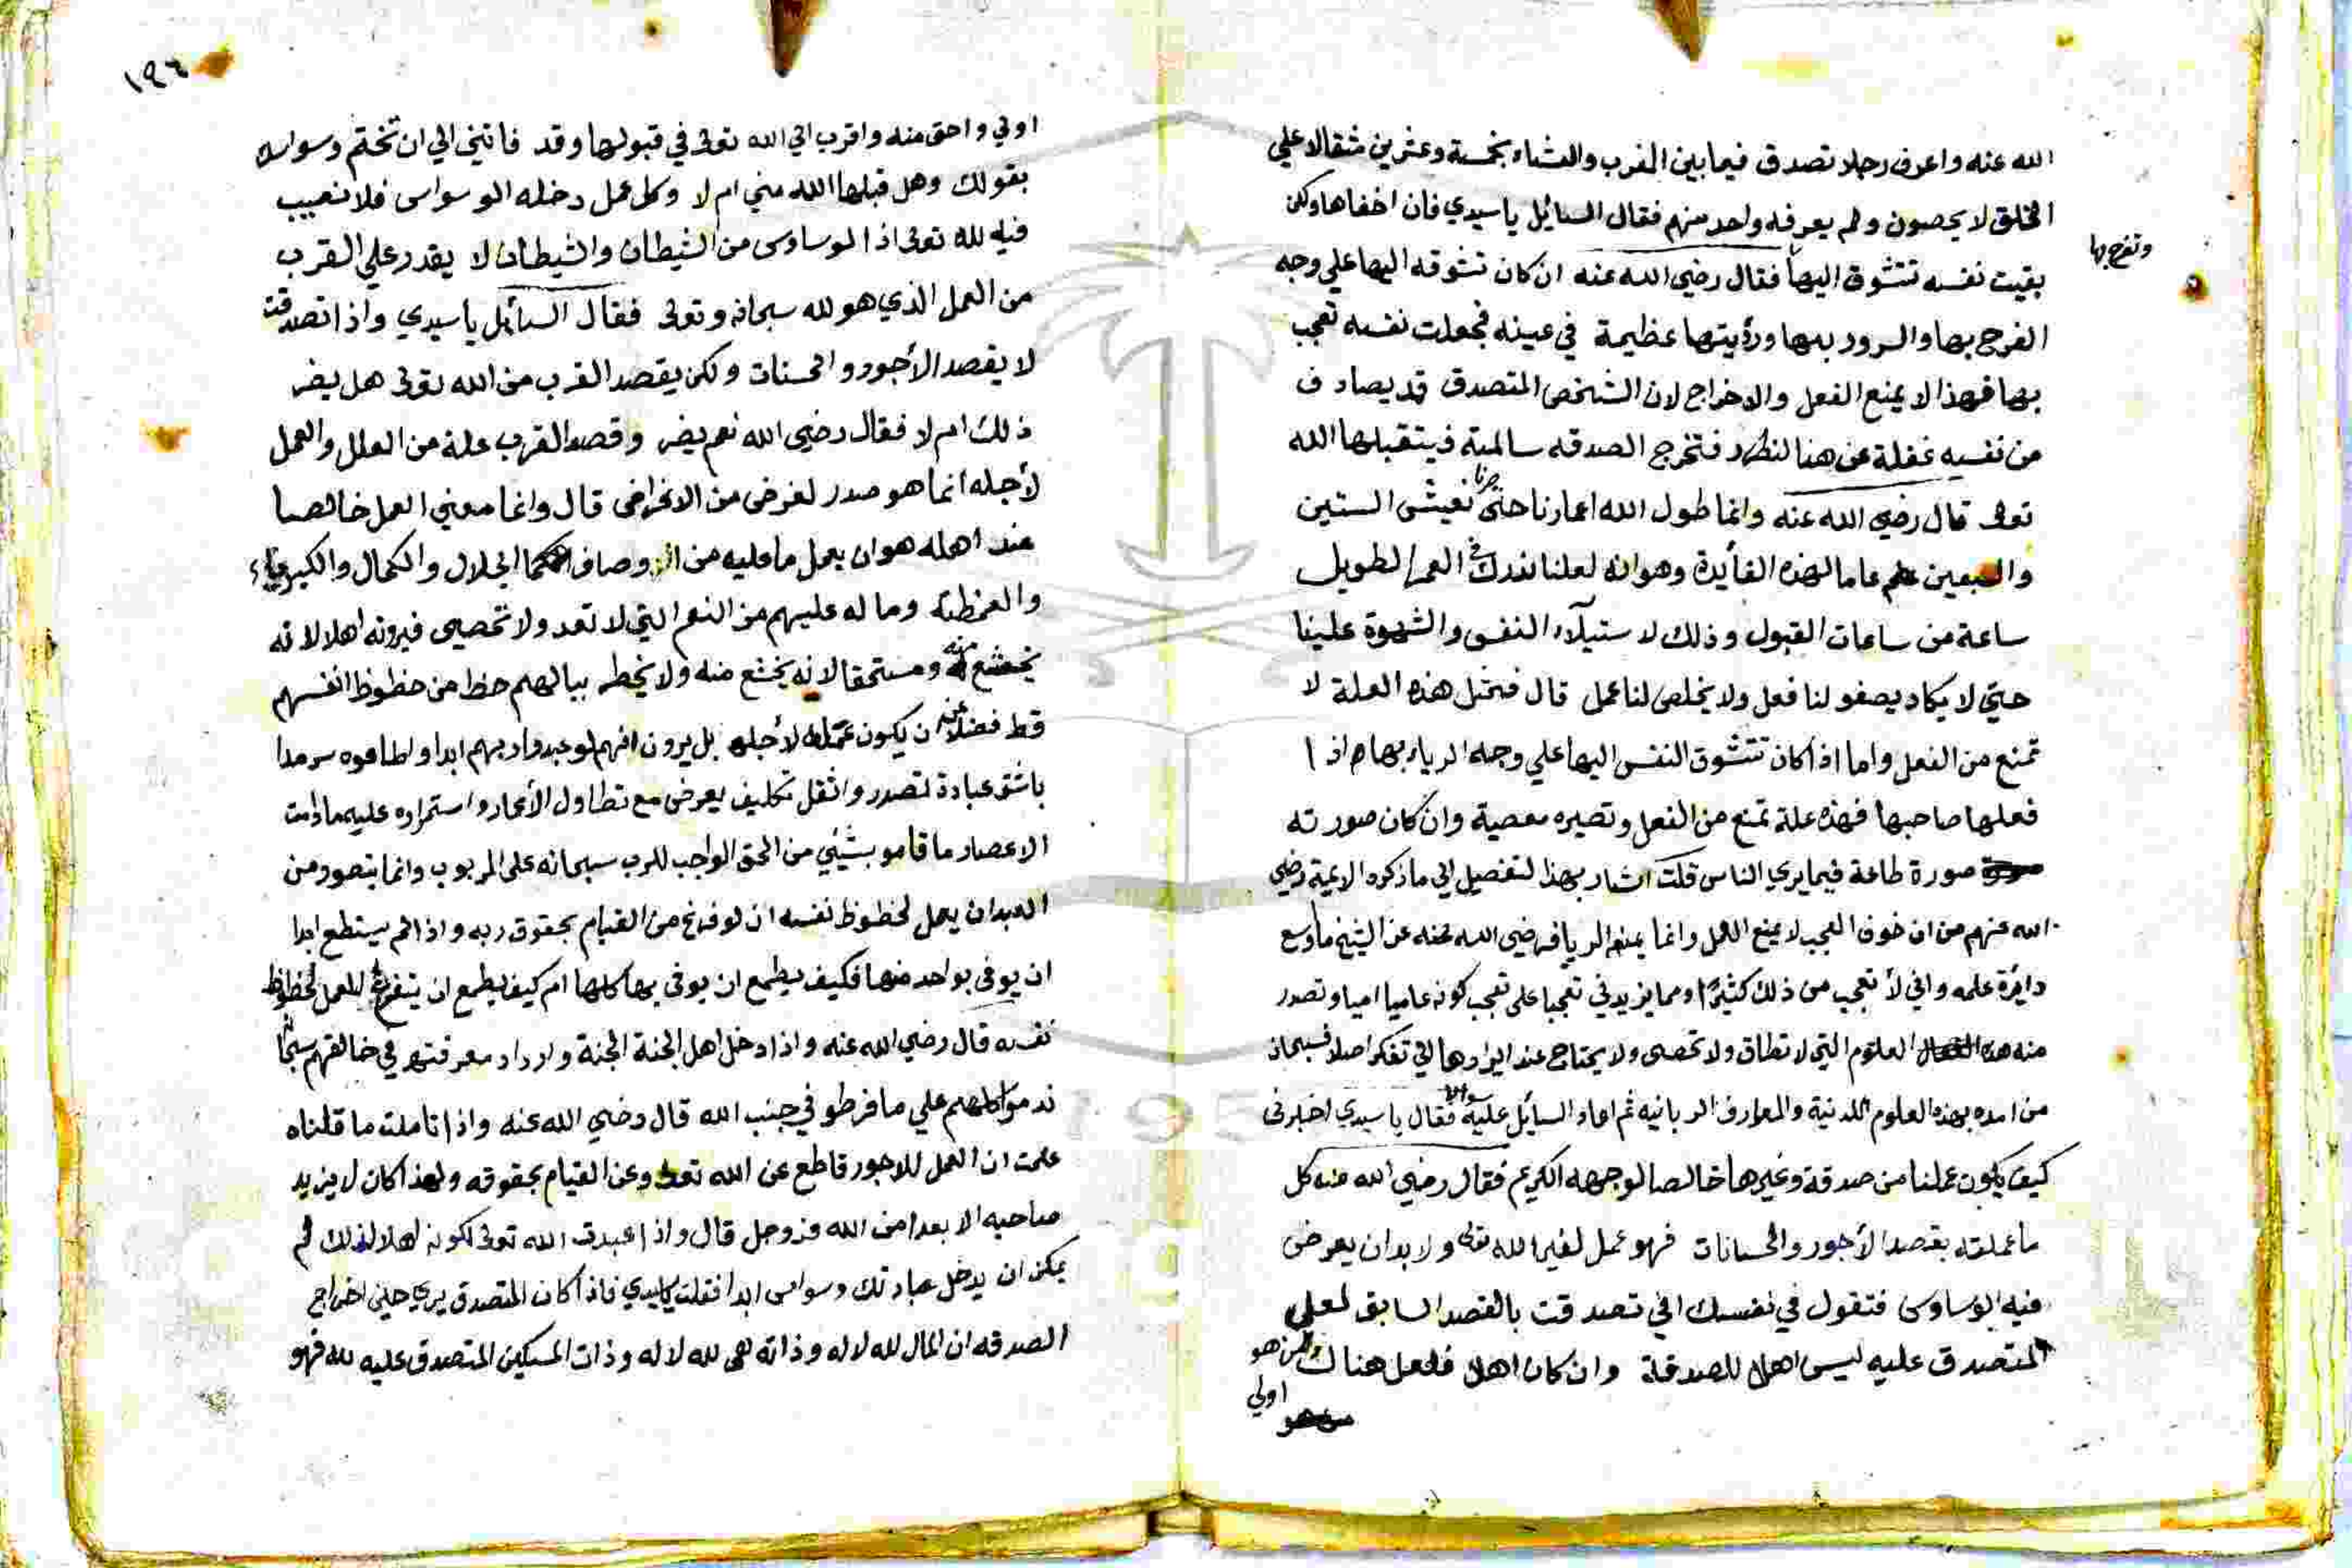 الله عنه واعرف رجلا تصدق فيما بين المغرب والعشاء بخمسة وعشرين مثقالا علي
الخلق لا يحصون ولم يعرفه واحد منهم فقال السائيل ياسيدي فان اخفاها ولكن
وتفرح بها
بقيت نفسه تتشوق اليها فقال رضي الله عنه ان كان تشوقه اليها علي وجه
الفرح بها والسرور بها ورؤيتها عظيمة في عينه فجعلت نفسه تعجب
بها فهذا لا يمنع الفعل والاخراج لان الشخص المتصدق قد يصادف
من نفسه غفلة عن هنا لنظر فتخرج الصدقه سالمة فيتقبلها الله
تعالى قال رضي الله عنه وانما طول الله اعمارنا حتى صرنا نعيش الستين
والسبعين عاما لهذه الفأيدة وهو انه لعلنا ندرك في العمر الطويل
ساعة من ساعات القبول وذلك لاستيلآء النفس والشهوة علينا
حتي لا يكاد يصفو لنا فعل ولا يخلص لنا عمل قال فمثل هذه العلة لا
تمنع من الفعل واما اذا كان تتشوق النفس اليها علي وجه الرياء بها اذا
فعلها صاحبها فهذه علة تمنع من الفعل وتصيره معصية وان كان صورته
صورة طاعة فيما يري الناس قلت اشار بهذا لتفصيل الي ما ذكره الايمة رضي
الله عنهم من ان خوف العجب لا يمنع العمل وانما يمنع الريا فرضي الله عنه عن الشيخ ما وسع
دايرة علمه واني لأتعجب من ذلك كثيرا ومما يزيدني تعجبا على تعجب كونه عاميا اميا وتصدر
منه هذه العلوم التي لا تطاق ولا تحصى ولا يحتاج عند ايرادها الي تفكر اصلا فسبحان
من امده بهذه العلوم اللدنية والمعارف الربانيه ثم اعاد السائل عليه سوالا فقال ياسيدي اخبرني
كيف يكون عملنا من صدقة وغيرها خالصا لوجهه الكريم فقال رضي الله عنه كل
ما عملته بقصد الأجور والحسانات فهو عمل لغير الله تعالى ولا بد ان يعرض
فيه الوساوس فتقول في نفسك اني تصدقت بالقصد السابق لعلي
المتصدق عليه ليس اهلا للصدقة وان كان اهلا فلعل هناك من هو
اولي
١٩٤
اولي واحق منه واقرب الي الله تعالى في قبولها وقد فاتني الي ان تختم وسواسك
بقولك وهل قبلها الله مني ام لا وكل عمل دخله الوسواس فلا نصيب
فيه لله تعالى اذ الوساوس من الشيطان والشيطان لا يقدر علي القرب
من العمل الذي هو لله سبحانه وتعالى فقال السأيل ياسيدي واذا تصدقت
لا يقصد الأجور والحسنات ولكن يقصد القرب من الله تعالى هل يضر
ذلك ام لا فقال رضي الله نعم يضر وقصد القرب علة من العلل والعمل
لأجله انما هو صدر لغرض من الاغراض قال وانما معني العمل خالصا
عند اهله هو ان يعمل ما عليه من الاوصاف الجلال والكمال والكبرياء
والعظمة وما له عليهم من النعم التي لا تعد ولا تحصى فيرونه اهلا لانه
يخضع له ومستحقا لانه يخشع منه ولا يخطر ببالهم حظ من حظوظ انفسهم
قط فضلا عن ان يكون عمله لأجله بل يرون انهم لو عبدوا ربهم ابدا واطاعوه سرمدا
باشق عبادة تصدر واثقل تكليف يعرض مع تطاول الأعمار واستمراره عليه مادامت
الاعصار ما قاموا بشيئي من الحق الواجب للرب سبحانه على المربوب وانما يتصور من
العبد ان يعمل لحظوظ نفسه ان لو فرغ من القيام بحقوق ربه واذا لم يستطع ابدا
ان يوفى بواحد منها فكيف يطمع ان يوفى بها كلها ام كيف يطمع ان يتفرغ للعمل لحظوظ
نفسه قال رضي الله عنه واذا دخل اهل الجنة الجنة وازداد معرفتهم في خالقهم سبحانه
ندموا كلهم علي ما فرطو في جنب الله قال رضي الله عنه واذا تاملت ما قلناه
علمت ان العمل للاجور قاطع عن الله تعالى وعن القيام بحقوقه ولهذا كان لا يزيد
صاحبه الا بعدا من الله عز وجل قال واذا عبدت الله تعالى لكونه اهلا لذلك لم
يمكن ان يدخل عبادتك وسواس ابدا فقلت ياسيدي فاذا كان المتصدق يري حين اخراج
الصدقه ان المال لله لا له وذاته هي لله لا له وذات المسكين المتصدق عليه لله فهو